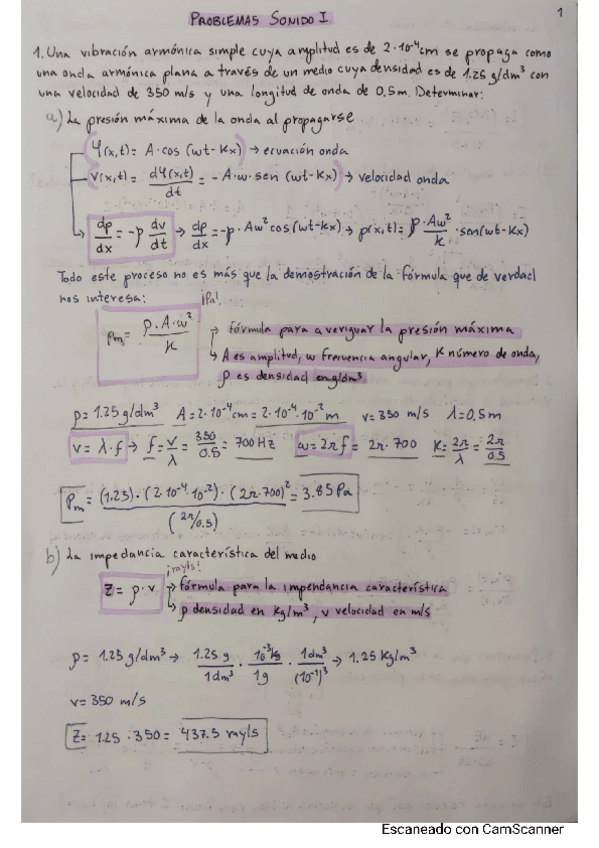 PROBLEMAS SONIDO I
1
1. Una vibración armónica simple cuya amplitud es de 2·10⁻⁴cm se propaga como
una onda armónica plana a través de un medio cuya densidad es de 1.25 g/dm³ con
una velocidad de 350 m/s y una longitud de onda de 0.5m. Determinar:
a) La presión máxima de la onda al propagarse
Ψ(x,t) = A·cos (ωt-Kx) → ecuación onda
v(x,t) = dΨ(x,t)/dt = -A·ω·sen (ωt-Kx) → velocidad onda
dp/dx = -ρ dv/dt → dp/dx = -ρ·Aω²cos(ωt-Kx) → p(x,t) = ρ·Aω²/K ·sen(ωt-Kx)
Todo este proceso no es más que la demostración de la fórmula que de verdad
nos interesa:
¡Pa!
Pm = ρ·A·ω²/K
→ fórmula para averiguar la presión máxima
→ A es amplitud, ω frecuencia angular, K número de onda,
ρ es densidad en g/dm³
ρ = 1.25 g/dm³ A = 2·10⁻⁴cm = 2·10⁻⁴·10⁻² m v = 350 m/s λ = 0.5m
v = λ·f → f = v/λ = 350/0.5 = 700 Hz ω = 2πf = 2π·700 K = 2π/λ = 2π/0.5
Pm = (1.25)·(2·10⁻⁴·10⁻²)·(2π·700)²/(2π/0.5) = 3.85 Pa
b) La impedancia característica del medio
¡rayls!
Z = ρ·v → fórmula para la impendancia característica
→ ρ densidad en Kg/m³, v velocidad en m/s
ρ = 1.25 g/dm³ → 1.25 g/1dm³ · 10⁻³kg/1g · 1dm³/(10⁻¹)³ → 1.25 Kg/m³
v = 350 m/s
Z = 1.25·350 = 437.5 rayls
Escaneado con CamScanner